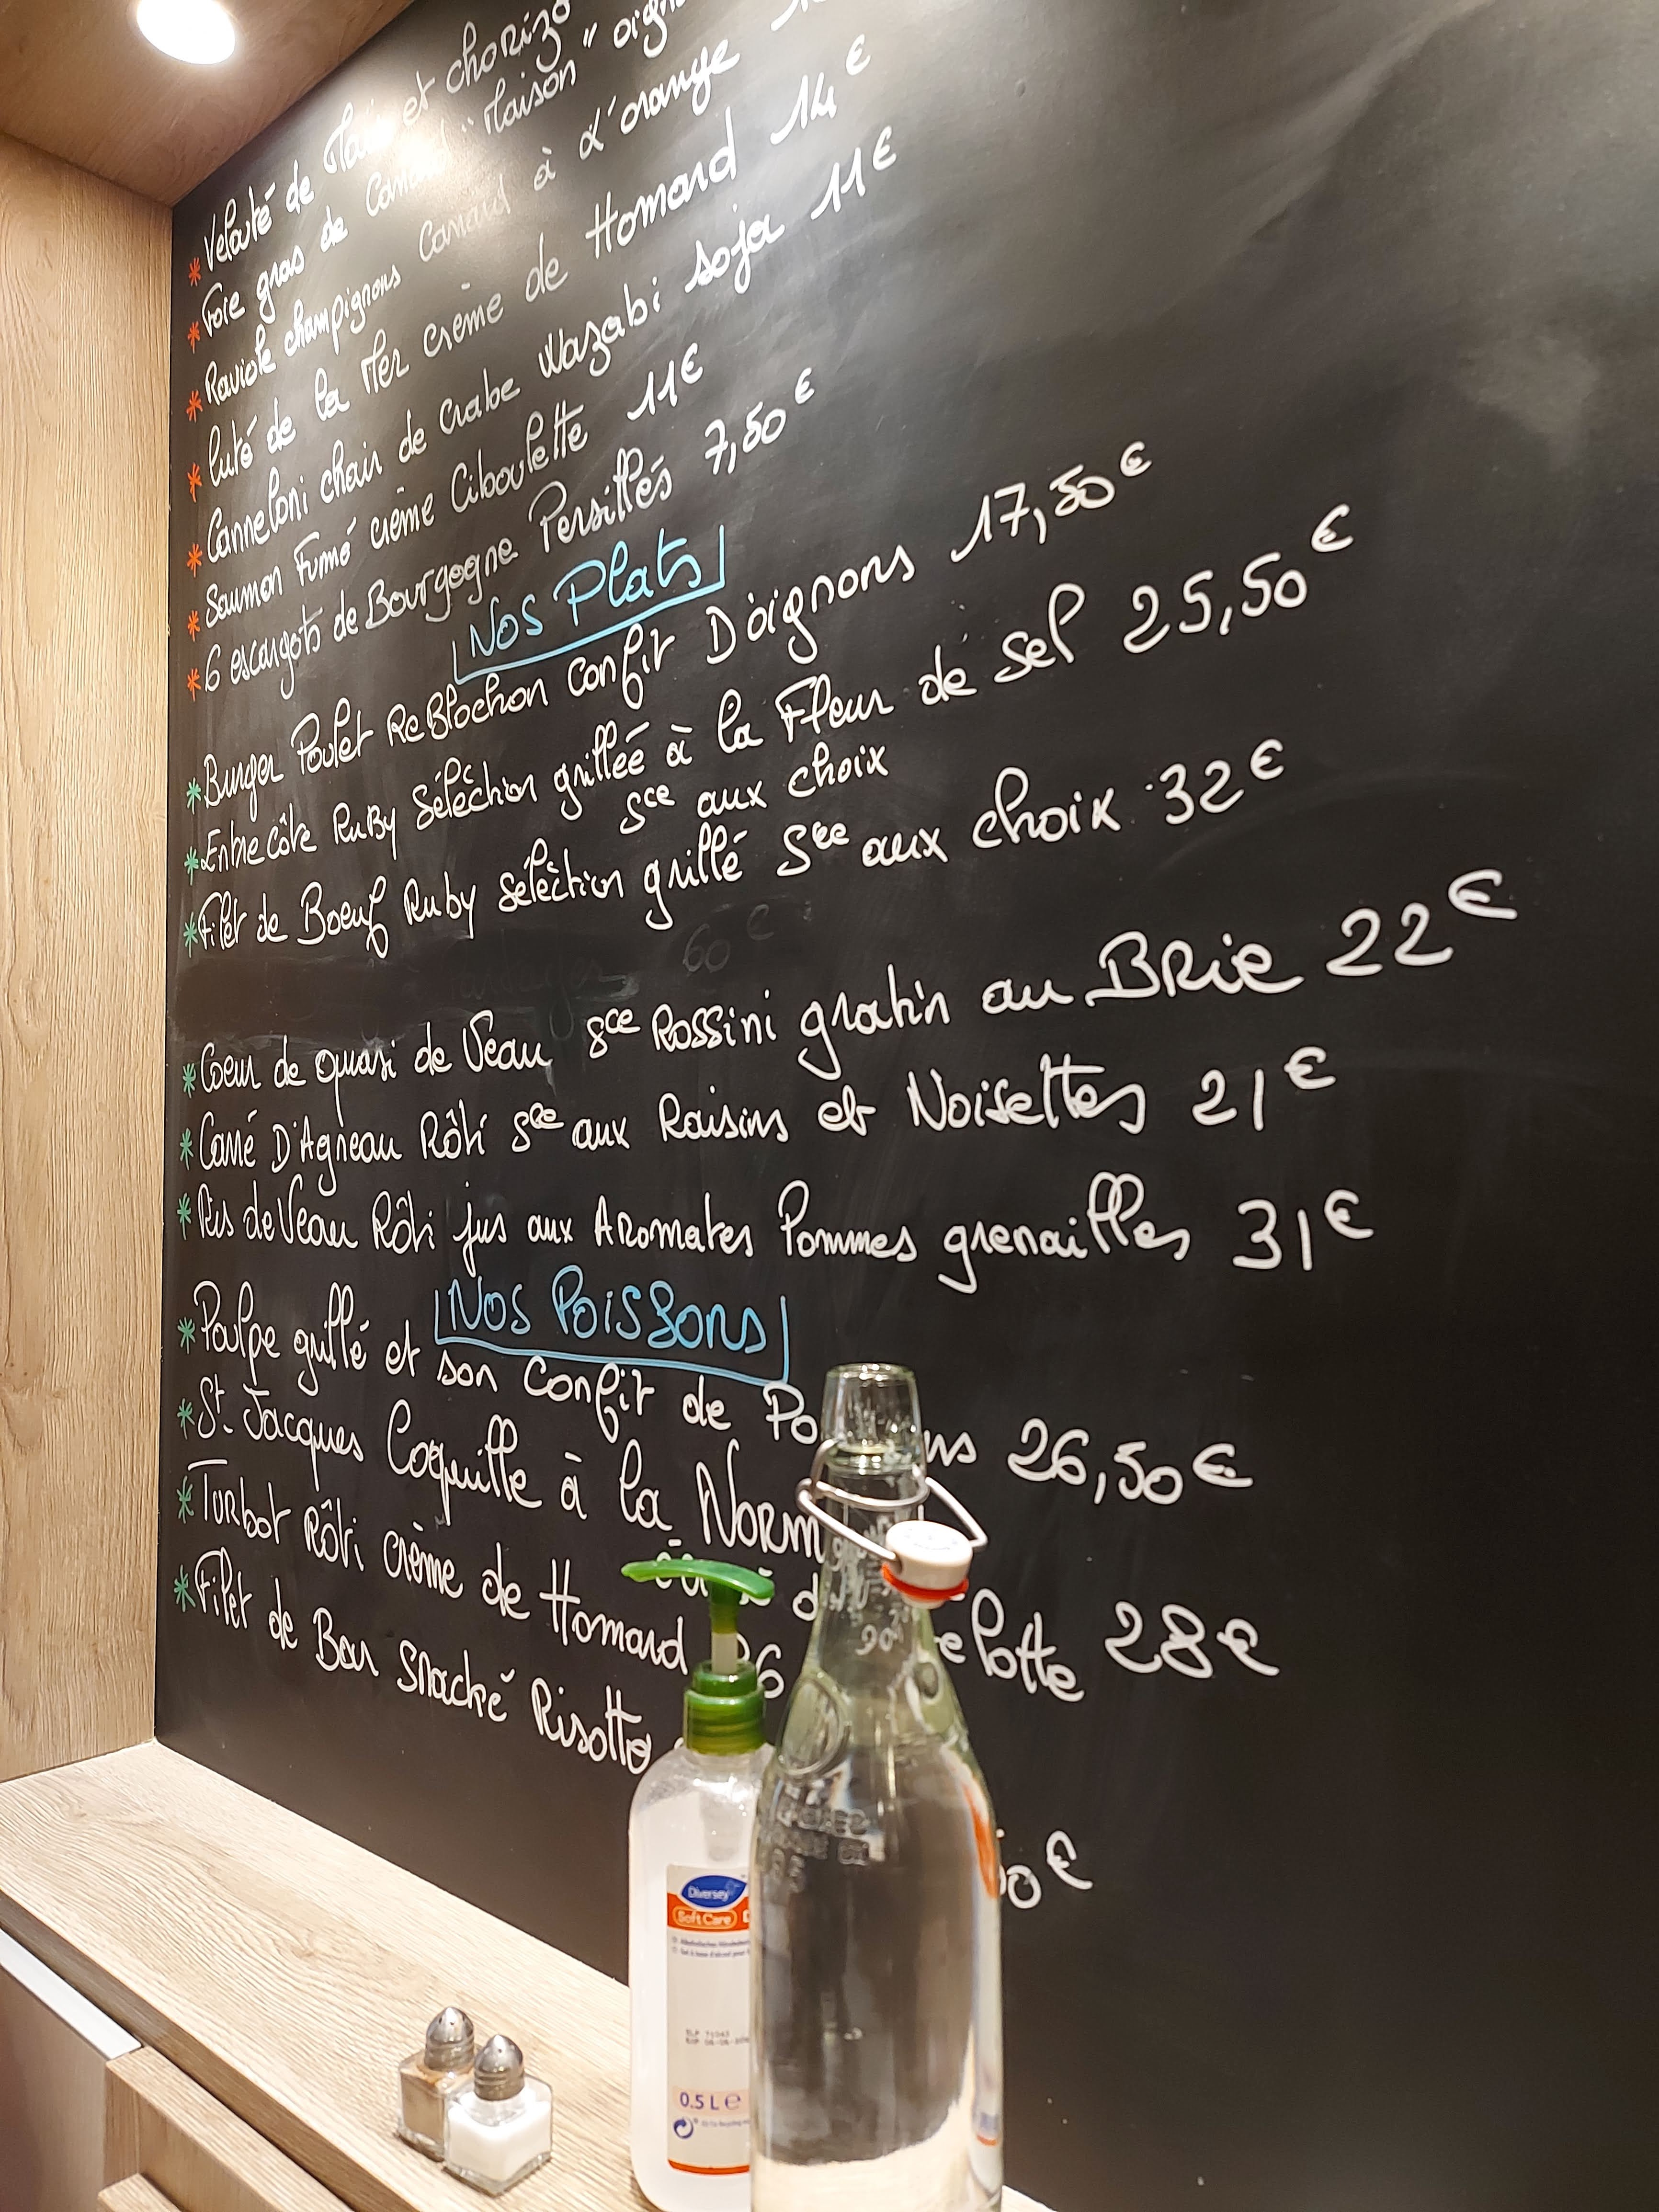 * Velouté de Maïs et chorizo
* Foie gras de Canard "Maison" oign
* Raviole champignons Canard à L'orange
* luté de la Mer crème de Homard 14€
* Canneloni chair de crabe Wazabi soja 11€
* Saumon Fumé crème Ciboulette 11€
* 6 escargots de Bourgogne Persillés 7,50€
Nos Plats
* Burger Poulet ReBlochon Confit D'oignons 17,50€
* Entrecôte RuBy séléction grillée à la Fleur de sel 25,50€
sce aux choix
* Filet de Boeuf Ruby séléction grillé sce aux choix 32€
60€
* Coeur de quasi de Veau sce Rossini gratin au BRie 22€
* Carré D'Agneau Rôti sce aux Raisins et Noisettes 21€
* Ris de Veau Rôti jus aux Aromates Pommes grenailles 31€
Nos Poissons
* Poulpe grillé et son Confit de Po ns 26,50€
* St Jacques Coquille à la Norm
elotte 28€
* Turbot Rôti crème de Homard 36
* Filet de Bar snacké Risotto
0€
Diversey
Soft Care
0.5 L e